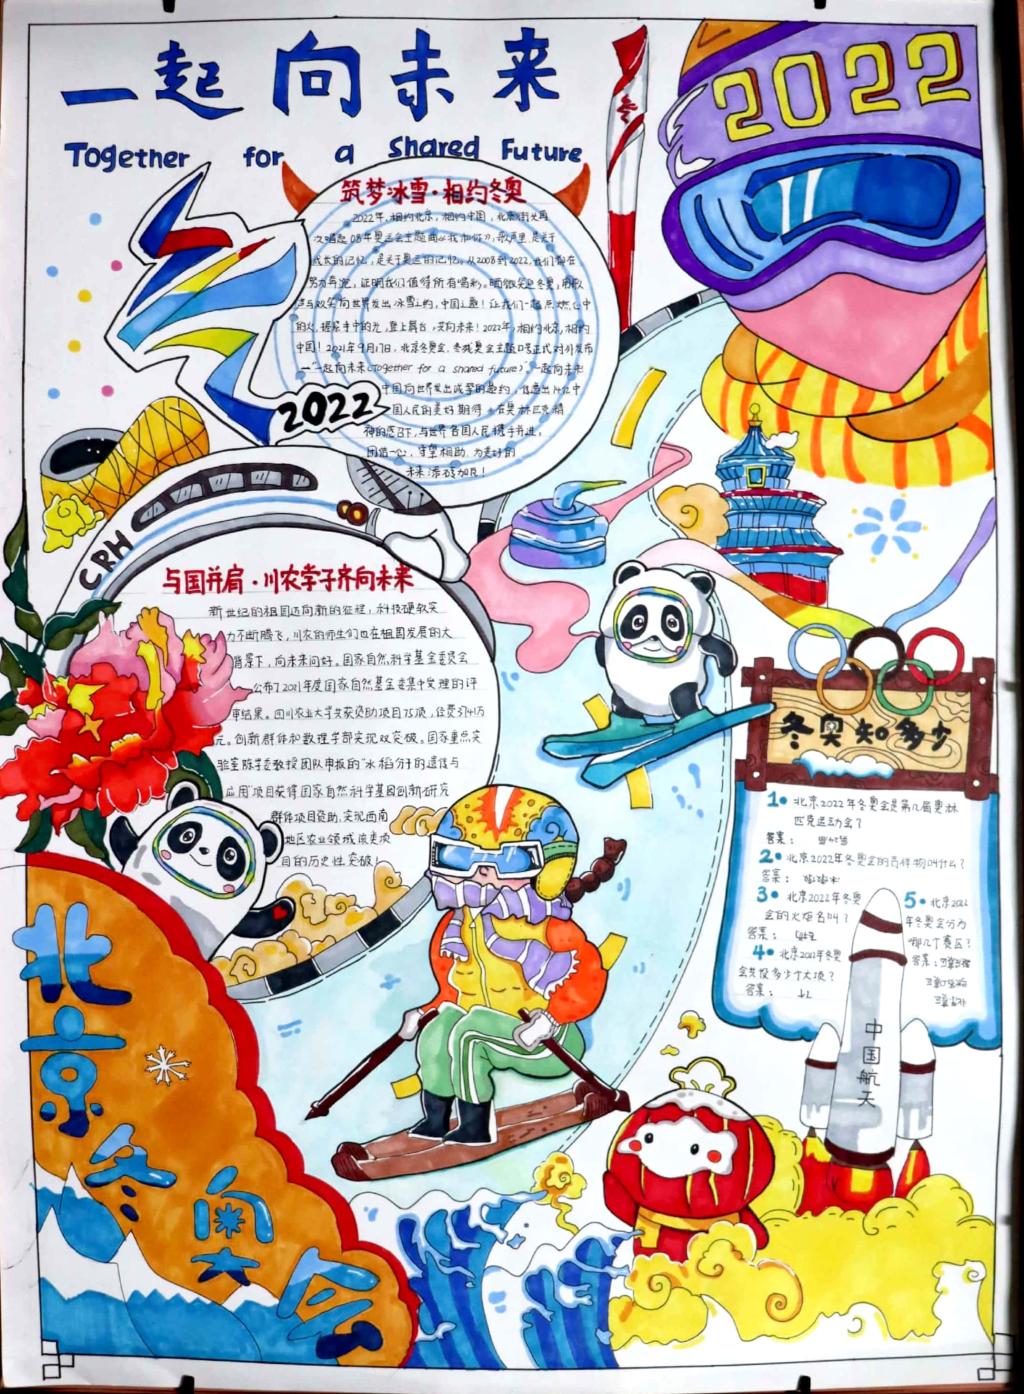 一起向未来
Together for a Shared Future
2022
筑梦冰雪·相约冬奥
2022年,相约北京,相约中国,北京街头再
次唱起08年奥运会主题曲《我和你》,歌声里,是关于
成长的记忆,是关于奥运的记忆,从2008到2022,我们都在
努力奔跑,证明我们值得所有喝彩。
与世界发出冰雪之约,中国之邀!让我们一起点燃心中
的火,握紧手中的光,登上舞台,共向未来!2022年,相约北京,相约
中国!2021年9月17日,北京冬奥会、冬残奥会主题口号正式对外发布
—“一起向未来(Together for a shared future)。一起向未来
中国向世界发出诚挚的邀约,传递出14亿中
国人民的美好期待。在奥林匹克精
神的感召下,与世界各国人民携手并进,
团结一心,守望相助,为更好的
未来添砖加瓦!
2022
CRH
与国并肩·川农学子齐向未来
新世纪的祖国迈向新的征程,科技硬软实
力不断腾飞,川农的师生们也在祖国发展的大
背景下,向未来问好。国家自然科学基金委员会
公布了2021年度国家自然基金委集中受理的评
审结果。四川农业大学共获资助项目75项,经费3741万
元。创新群体和数理学部实现双突破。国家重点实
验室陈学伟教授团队申报的“水稻分子的遗传与
应用”项目获得国家自然科学基金创新研究
群体项目资助,实现西南
地区农业领域该类项
目的历史性突破!
冬奥知多少
1·北京2022年冬奥会是第几届奥林
匹克运动会?
答案:
2·北京2022年冬奥会的吉祥物叫什么?
答案:
3·北京2022年冬奥
会的火炬名叫?
答案:
4·北京2022年冬奥
会共设多少个大项?
答案:
5·北京2022
年冬奥会分为
哪几个赛区?
答案:
中国航天
北京冬奥会